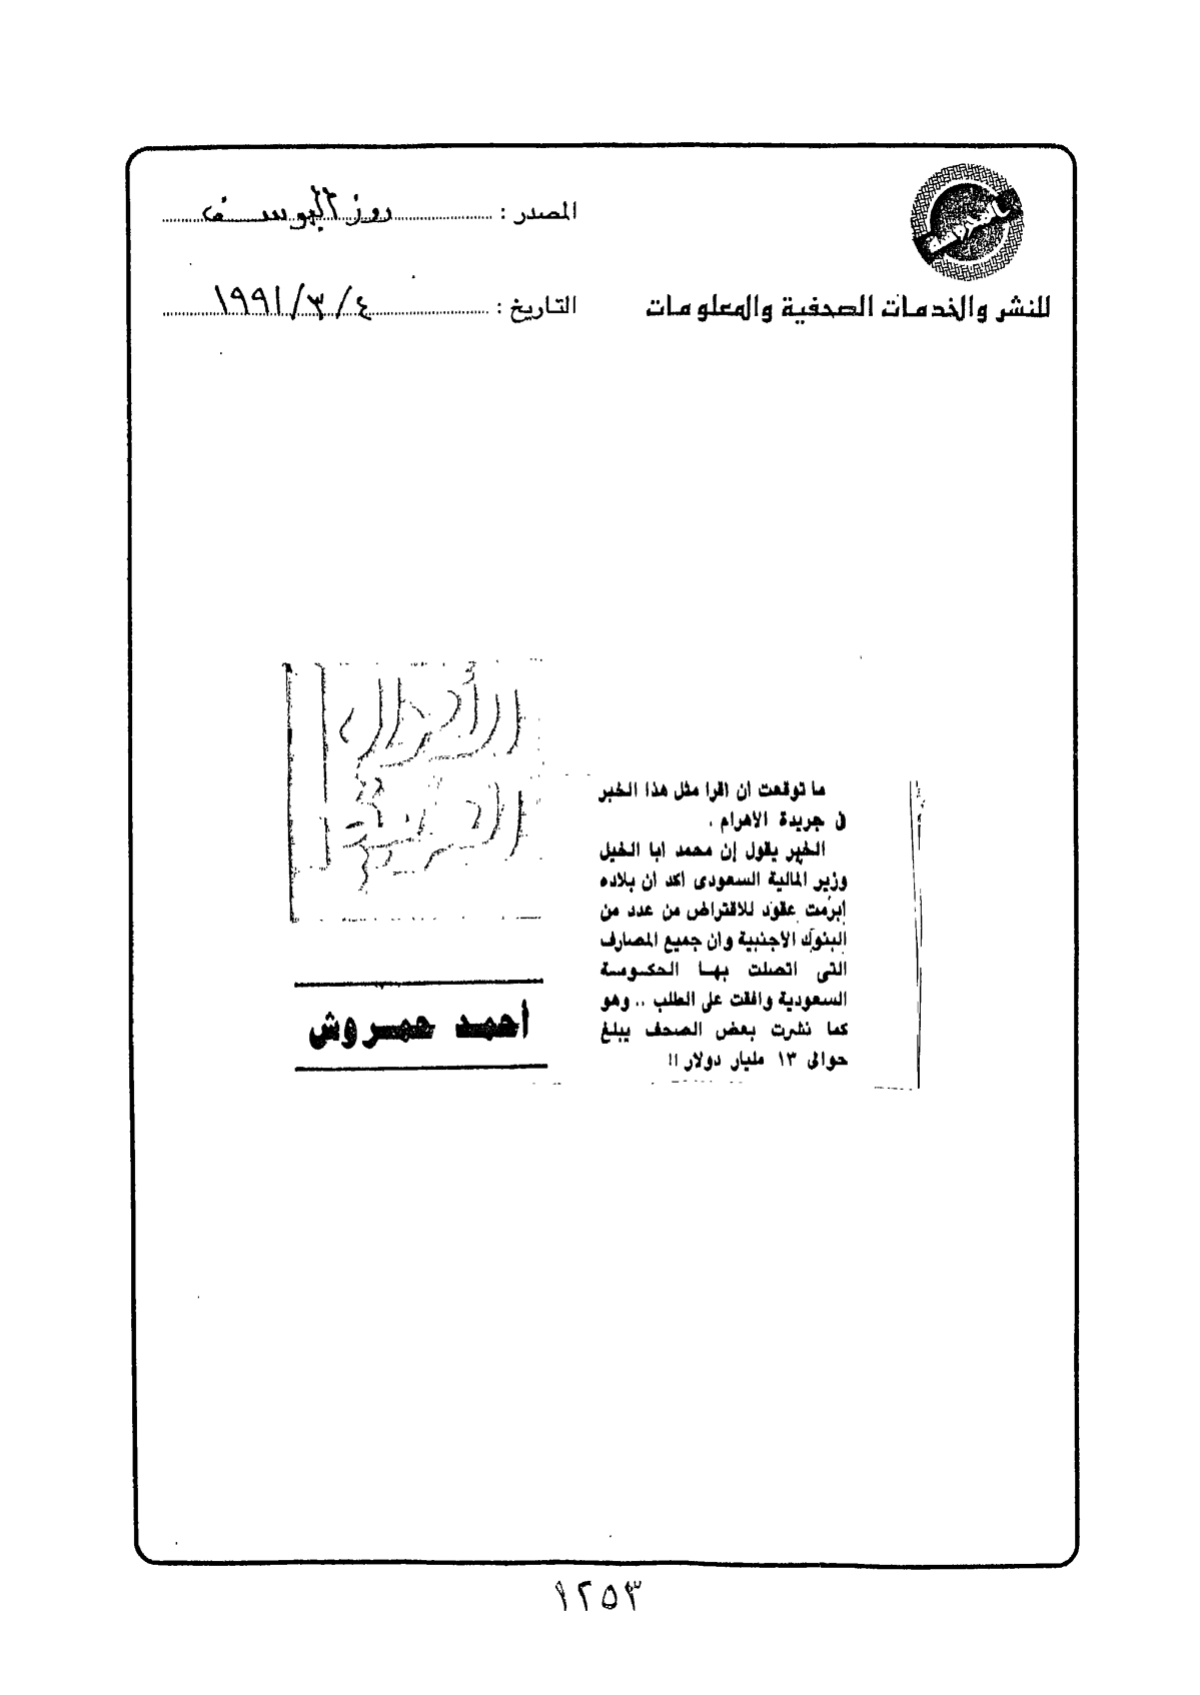 المصدر : روز اليوسف
للنشر والخدمات الصحفية والمعلومات
التاريخ : ٤ / ٣ / ١٩٩١
ما توقعت ان اقرا مثل هذا الخبر
فى جريدة الاهرام .
الخبر يقول إن محمد ابا الخيل
وزير المالية السعودى اكد ان بلاده
إبرمت عقود للاقتراض من عدد من
البنوك الاجنبية وان جميع المصارف
التى اتصلت بها الحكومة
السعودية وافقت على الطلب .. وهو
كما نشرت بعض الصحف يبلغ
حوالى ١٣ مليار دولار !!
أحمد حمروش
١٢٥٣